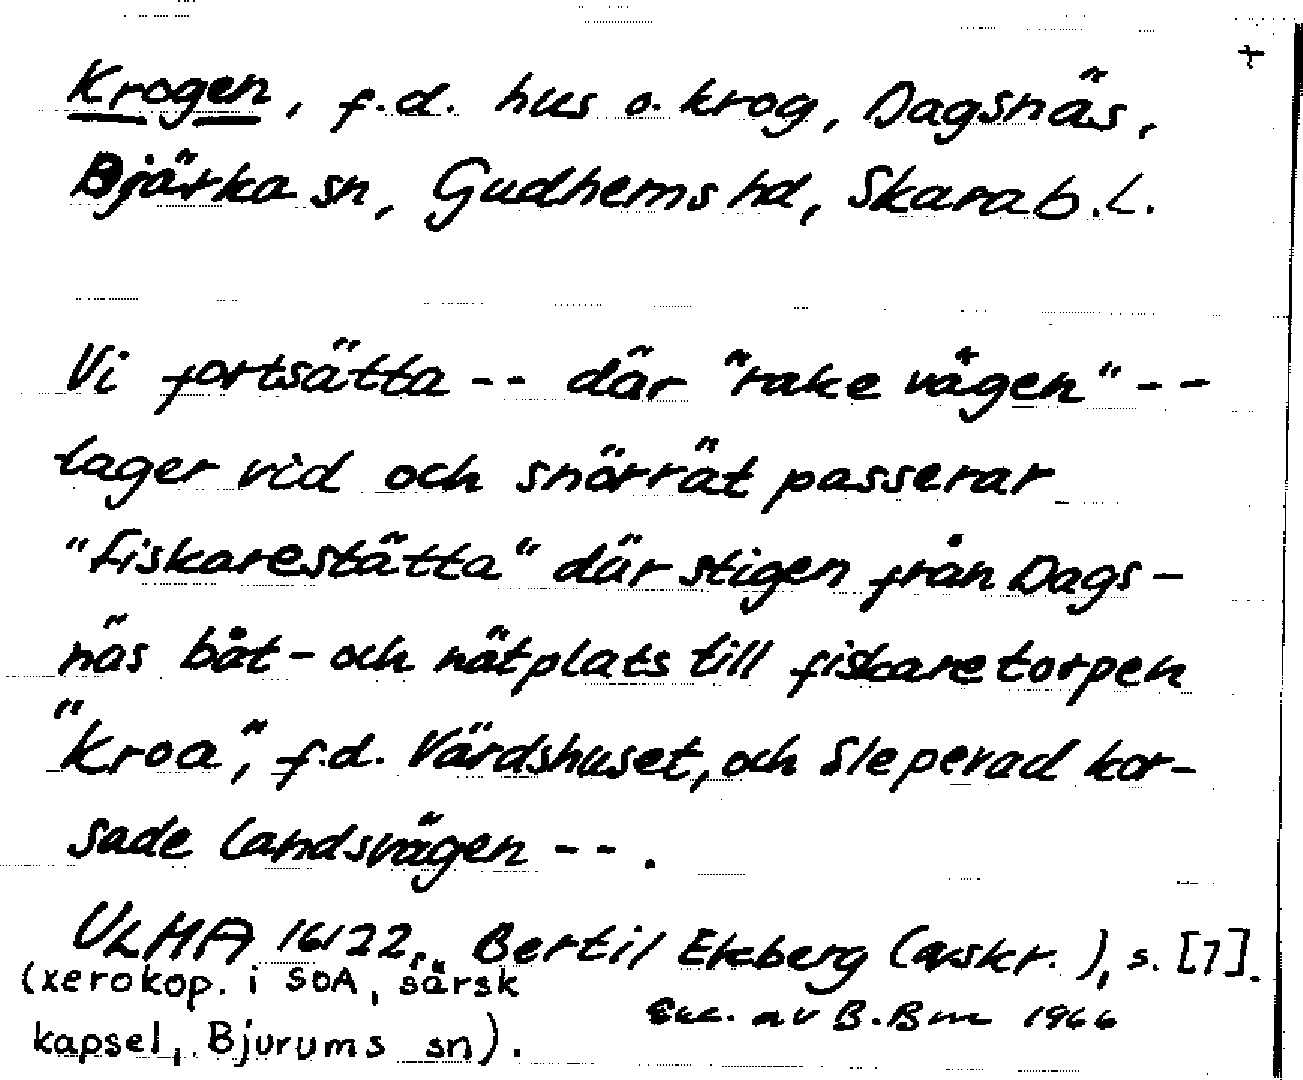 +
Krogen, f.d. hus o. krog, Dagsnäs,
Bjärka sn, Gudhems hd, Skarab.l.
Vi fortsätta -- där "rake vägen" --
tager vid och snörrät passerar
"Fiskarestätta" där stigen från Dags-
näs båt- och nätplats till fiskaretorpen
"Kroa", f.d. Värdshuset, och Sleperad kor-
sade landsvägen -- .
ULMA 16122, Bertil Ekberg (avskr.), s. [7].
(xerokop. i SOA, särsk
Exc. av B.Bm 1966
kapsel, Bjurums sn).